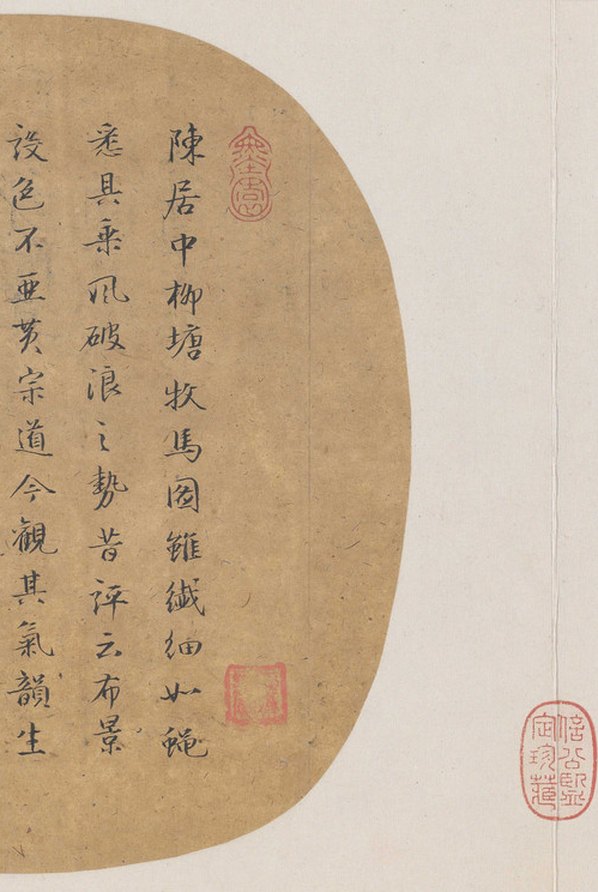 陳居中柳塘牧馬圖雖纖細如蠅
悉具乘風破浪之勢昔評云布景
設色不亞黃宗道今觀其氣韻生
信公鑒定珍藏